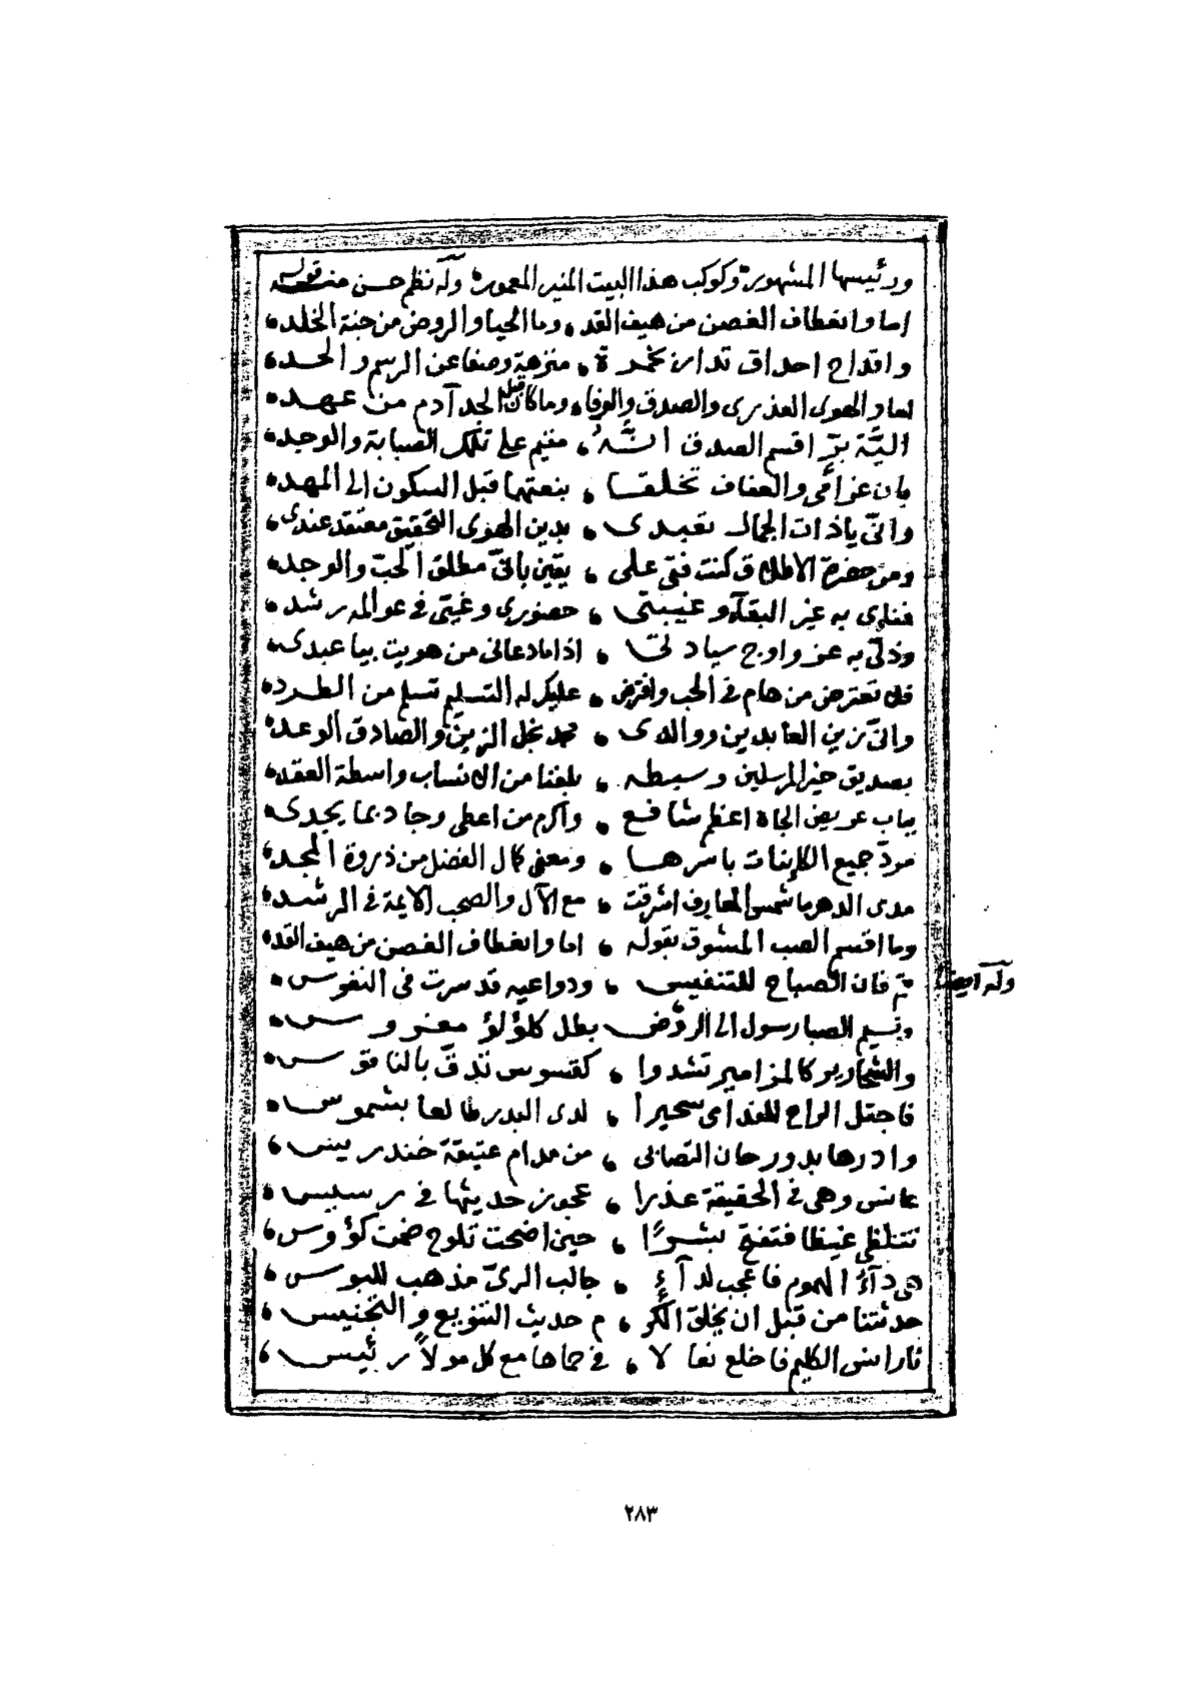 ورئيسها المشهور وكوكب هذا البيت المنير المعمور وله نظم حسن منه قوله
اما وانعطاف الغصن من هيف القد وما الحيا والروض من جنة الخلد
واقداح احداق تدار بخمرة منزهة وصفا عن الرسم والحد
اما والهوى العذرى والصدق والوفا وما كان قبل الجد آدم من عهد
اليّة برّ اقسم الصدق انّه مقيم على تلك الصبابة والوجد
بان غرامى والعفاف تخلقا بنعتهما قبل السكون الى المهد
وانى ياذات الجمال تعبدى بدين الهوى التحقيق معتقد عندى
ومن حضرة الاطلاق كنت فتى على يقين بانى مطلق الحب والوجد
فنائى به عين البقآء وغيبتى حضورى وغيتى فى عوالمه رشد
وذلّى به عز واوج سيادتى اذا ما دعانى من هويت بيا عبدى
فلا تعترض من هام فى الحب وافترض عليك له التسليم تسلم من الطرد
وانى زين العابدين ووالدى محمد نجل الزين والصادق الوعد
بصديق خير المرسلين وسيطه بلغنا من الانساب واسطة العقد
بباب عريض الجاه اعظم شافع واكرم من اعطى وجاد بما يجدى
ممدّ جميع الكاينات باسرها ومعنى كمال الفضل من ذروة المجد
مدى الدهر ما شمس المعارف اشرقت مع الآل والصحب الائمة فى الرشد
وما اقسم الصب المشوق بقوله اما وانعطاف الغصن من هيف القد
وله ايضا
قم فان الصباح للتنفيس ودواعيه قد سرت فى النفوس
ونسيم الصبا رسول الى الروض بطل كلؤلؤ مغروس
والشحارير كالمزامير تشدوا كقسوس تدقّ بالناقوس
فاجتل الراح للندامى سحيرا لدى البدر طالعا بشموس
وادرها بدور حان التصابى من مدام عتيقة خندريس
عانس وهى فى الحقيقة عذرا عجوز حديثها فى رسيس
تتلظى غيظا فتفتح بشرًا حين اضحت تلوح ضمن كؤوس
هى دآء الهموم فاعجب لدآء جالب الرىّ مذهب للبوس
حدثتنا من قبل ان يخلق الكر م حديث التنويع والتجنيس
نار انس الكليم فاخلع نعالا فى حماها مع كل مولا رئيس
٢٨٣